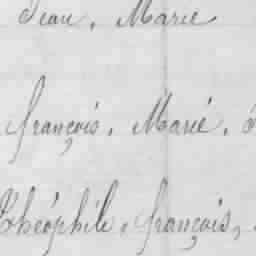 Jean, Marie
françois, Marie,
Théophile, françois,